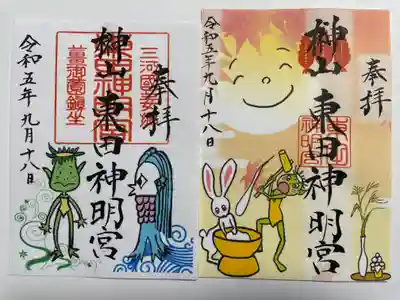 奉拝
三河國
榊山 東田神明宮
薑御薗鎮坐
令和五年九月十八日
奉拝
榊山 東田神明宮
令和五年九月十八日